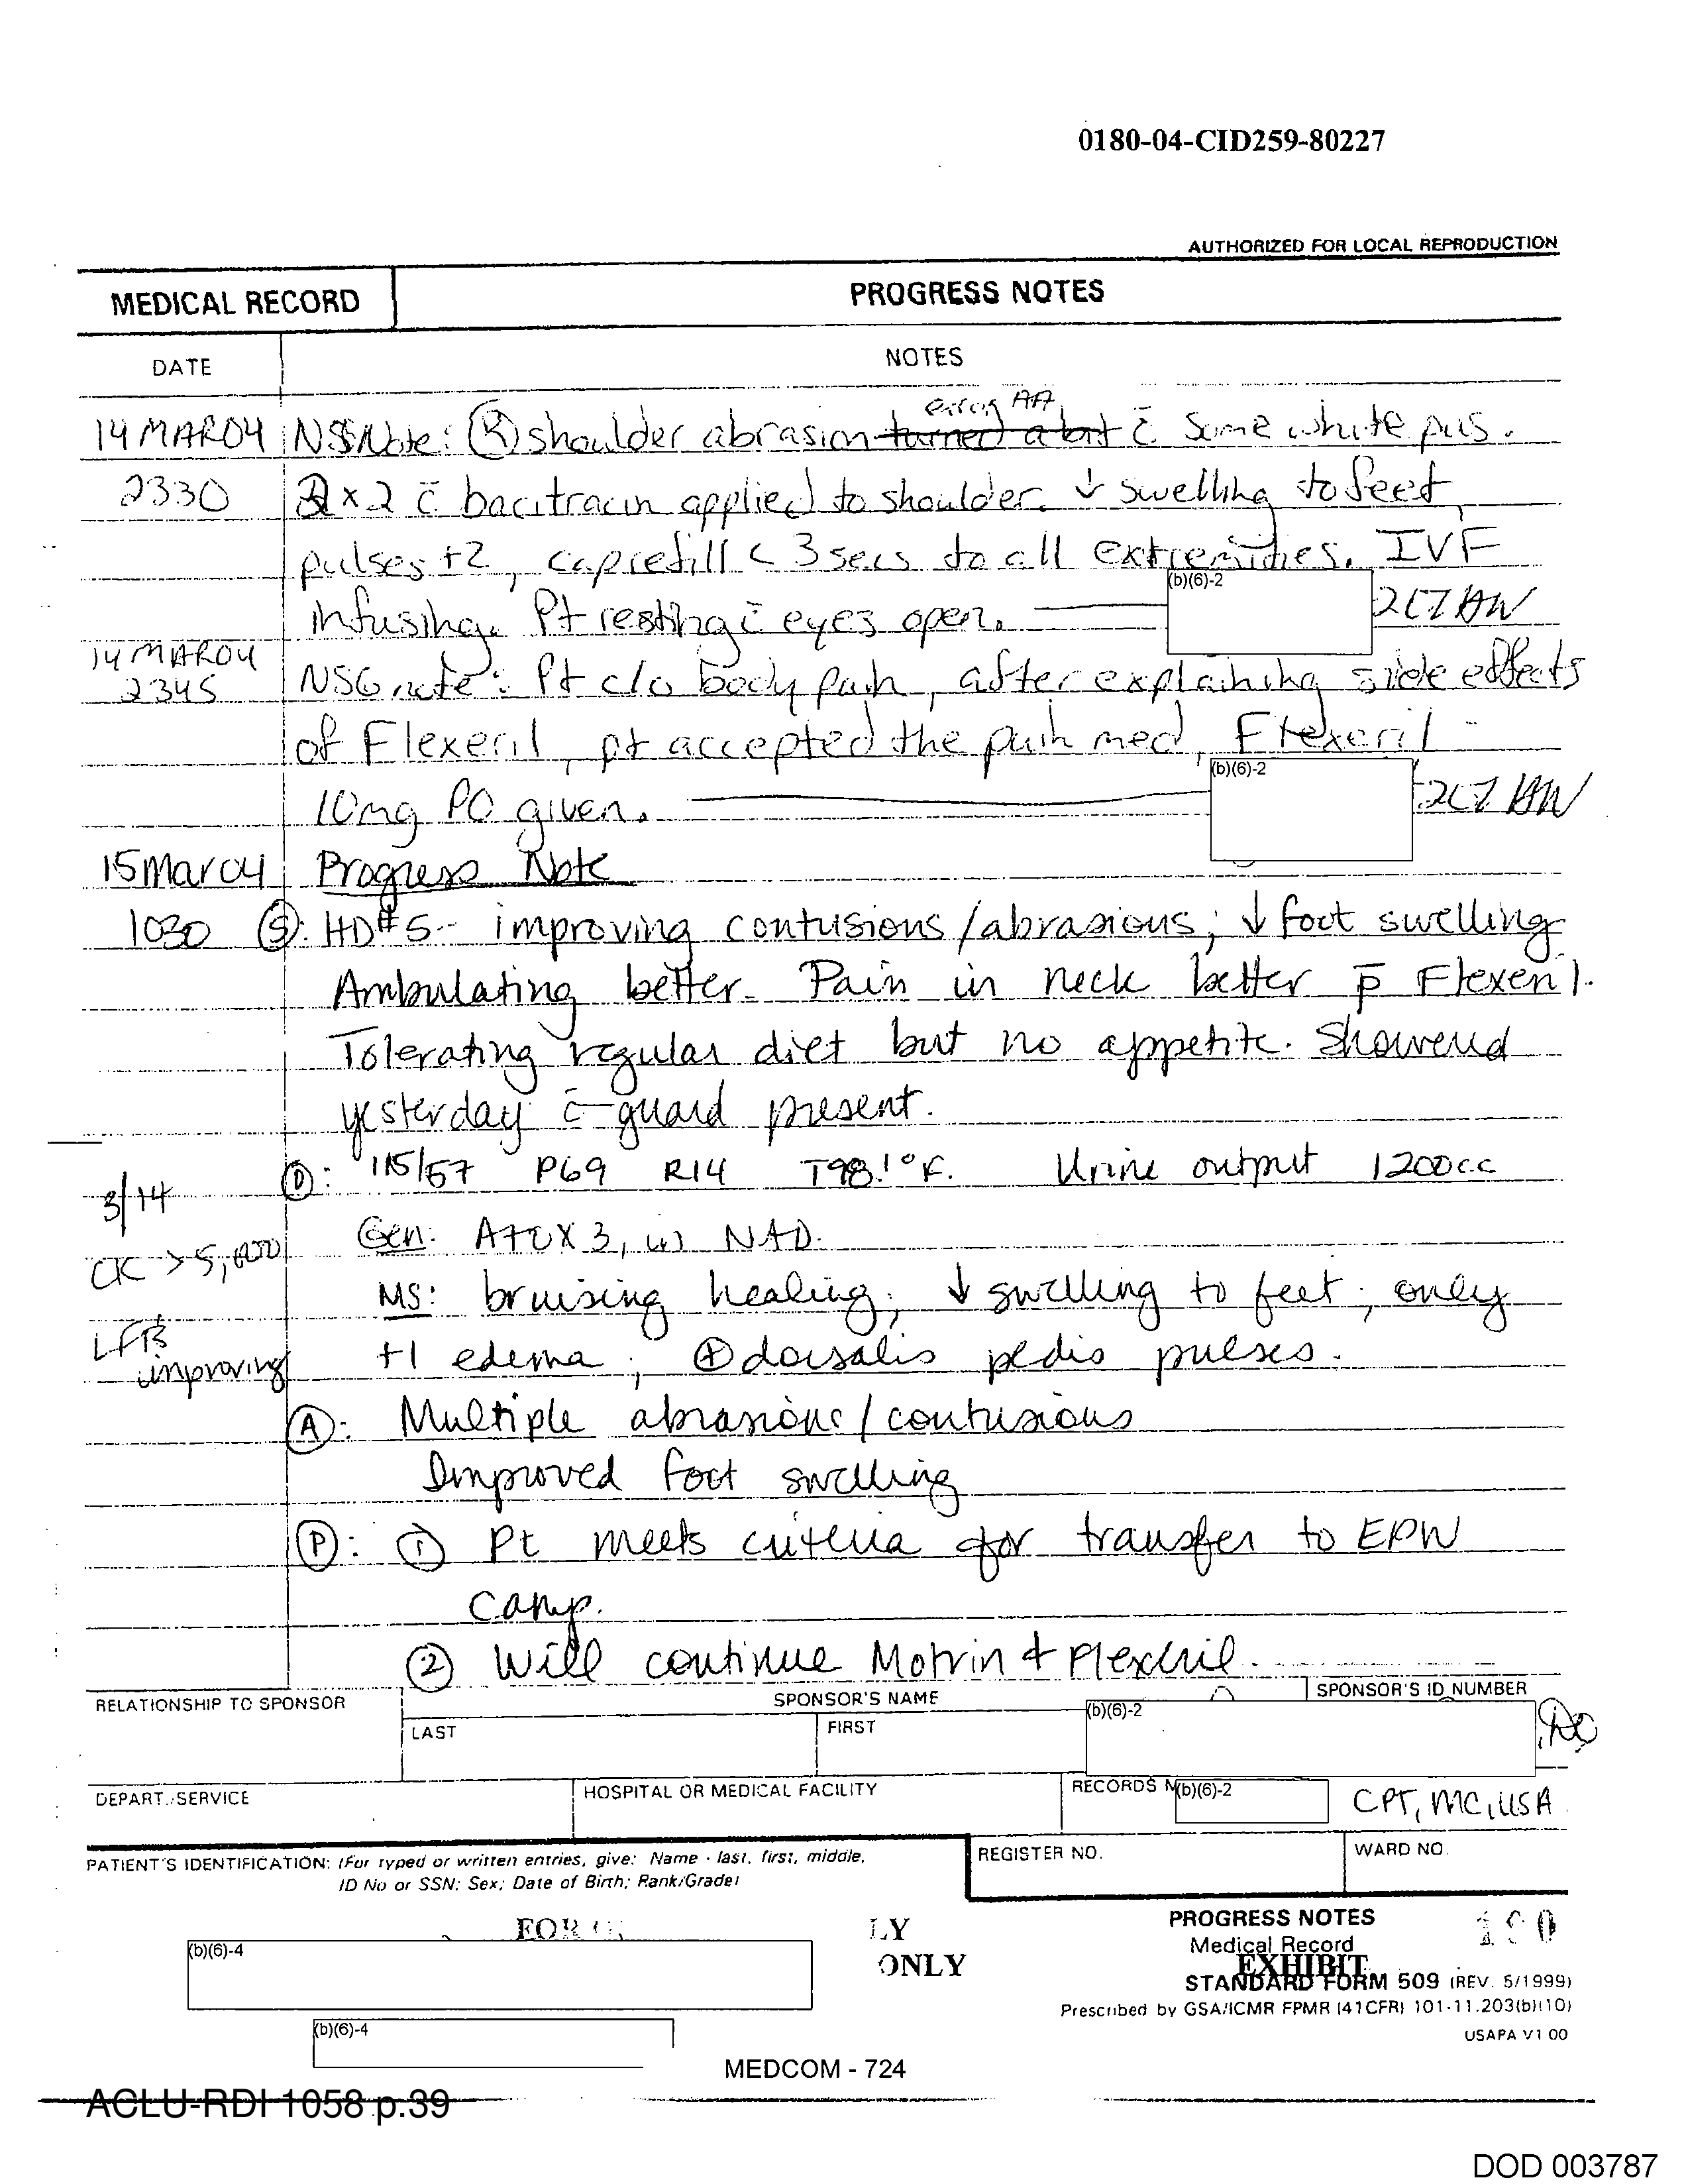 0180-04-CID259-80227
AUTHORIZED FOR LOCAL REPRODUCTION
MEDICAL RECORD
PROGRESS NOTES
DATE
NOTES
error AA
14 MAR04 NSNote: (R) shoulder abrasion turned a bit c̄ some white pus.
2330 2x2 c̄ bacitracin applied to shoulder. ↓ swelling to feet,
pulses +2, cap refill < 3 secs to all extremities. IVF
infusing. Pt resting c̄ eyes open. (b)(6)-2 2LT AN
14 MAR04
2345 NSG note: Pt c/o body pain, after explaining side effects
of Flexeril, pt accepted the pain med, Flexeril
10mg PO given. (b)(6)-2 2LT AN
15 Mar 04 Progress Note
1030 (S): HD#5 - improving contusions/abrasions; ↓ foot swelling
Ambulating better. Pain in neck better p̄ Flexeril.
Tolerating regular diet but no appetite. Showered
yesterday c̄ guard present.
(O): 115/57 P69 R14 T98.1°F. Urine output 1200cc
3/14
Gen: A+OX3, in NAD.
CK >5,000
MS: bruising healing; ↓ swelling to feet; only
LFTs
improving
+1 edema; ⊕ dorsalis pedis pulses.
(A): Multiple abrasions/contusions
Improved foot swelling
(P): ① Pt meets criteria for transfer to EPW
camp.
② Will continue Motrin + Flexeril.
RELATIONSHIP TO SPONSOR
SPONSOR'S NAME
SPONSOR'S ID NUMBER
LAST
FIRST
(b)(6)-2
DEPART./SERVICE
HOSPITAL OR MEDICAL FACILITY
RECORDS M
(b)(6)-2
CPT, MC, USA
PATIENT'S IDENTIFICATION: (For typed or written entries, give: Name - last, first, middle,
ID No or SSN; Sex; Date of Birth; Rank/Grade)
REGISTER NO.
WARD NO.
FOR LY
ONLY
PROGRESS NOTES
Medical Record
EXHIBIT
STANDARD FORM 509 (REV. 5/1999)
Prescribed by GSA/ICMR FPMR (41CFR) 101-11.203(b)(10)
USAPA V1.00
(b)(6)-4
(b)(6)-4
MEDCOM - 724
ACLU-RDI 1058 p.39
DOD 003787